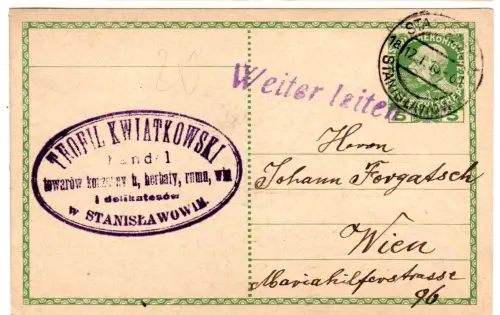 Weiter leiten
TEOFIL KWIATKOWSKI
handel
towarów korzenny h, herbaty, rumu, win
i delikatesów
w STANISŁAWOWIE.
Herrn
Johann Forgatsch
Wien
Mariahilferstrasse
96
5